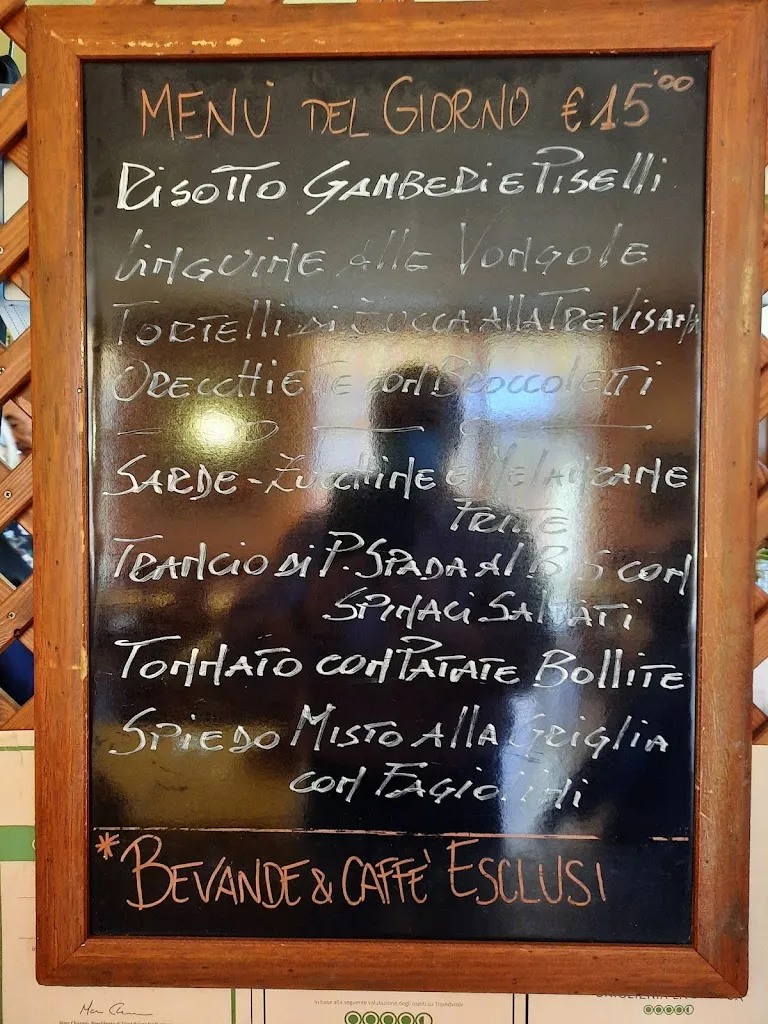 MENÙ DEL GIORNO €15'00
RISOTTO GAMBERI E PISELLI
LINGUINE ALLE VONGOLE
TORTELLI DI ZUCCA ALLA TREVISANA
ORECCHIETTE CON BROCCOLETTI
SARDE - ZUCCHINE E MELANZANE
FRITTE
TRANCIO DI P. SPADA AI con
SPINACI SALTATI
TONNATO CON PATATE BOLLITE
SPIEDO MISTO ALLA GRIGLIA
CON FAGIOLINI
*BEVANDE & CAFFÈ ESCLUSI
In base alla seguente valutazione degli ospiti su TripAdvisor